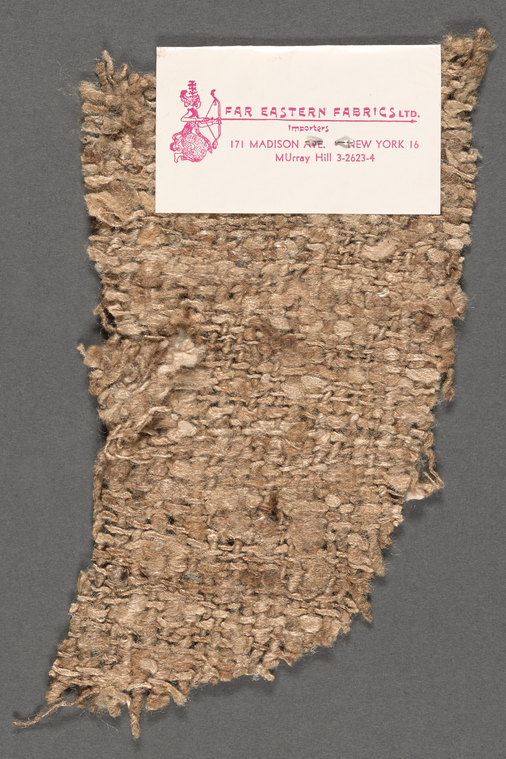 FAR EASTERN FABRICS LTD.
Importers
171 MADISON AVE. NEW YORK 16
MUrray Hill 3-2623-4